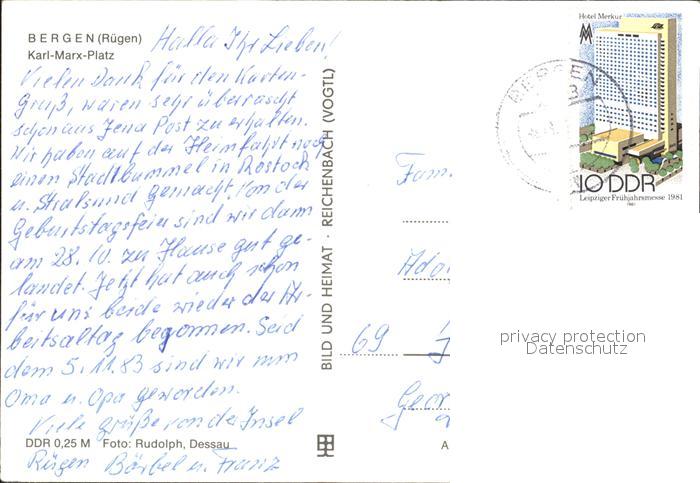 BERGEN (Rügen)
Karl-Marx-Platz
Hallo Ihr Lieben!
Vielen Dank für den Karten-
Gruß, waren sehr überrascht
schon aus Jena Post zu erhalten.
Wir haben auf der Heimfahrt noch
einen Stadtbummel in Rostock
u. Stralsund gemacht. Von der
Geburtstagsfeier sind wir dann
am 28. 10. zu Hause gut ge-
landet. Jetzt hat auch schon
für uns beide wieder der Ar-
beitsalltag begonnen. Seid
dem 5.11.83 sind wir nun
Oma u. Opa geworden.
Viele Grüße von der Insel
Rügen Bärbel u. Franz
DDR 0,25 M Foto: Rudolph, Dessau
BILD UND HEIMAT · REICHENBACH (VOGTL)
Hotel Merkur
10 DDR
Leipziger Frühjahrsmesse 1981
BERGEN
Fam.
69 J
Geor
A
privacy protection
Datenschutz